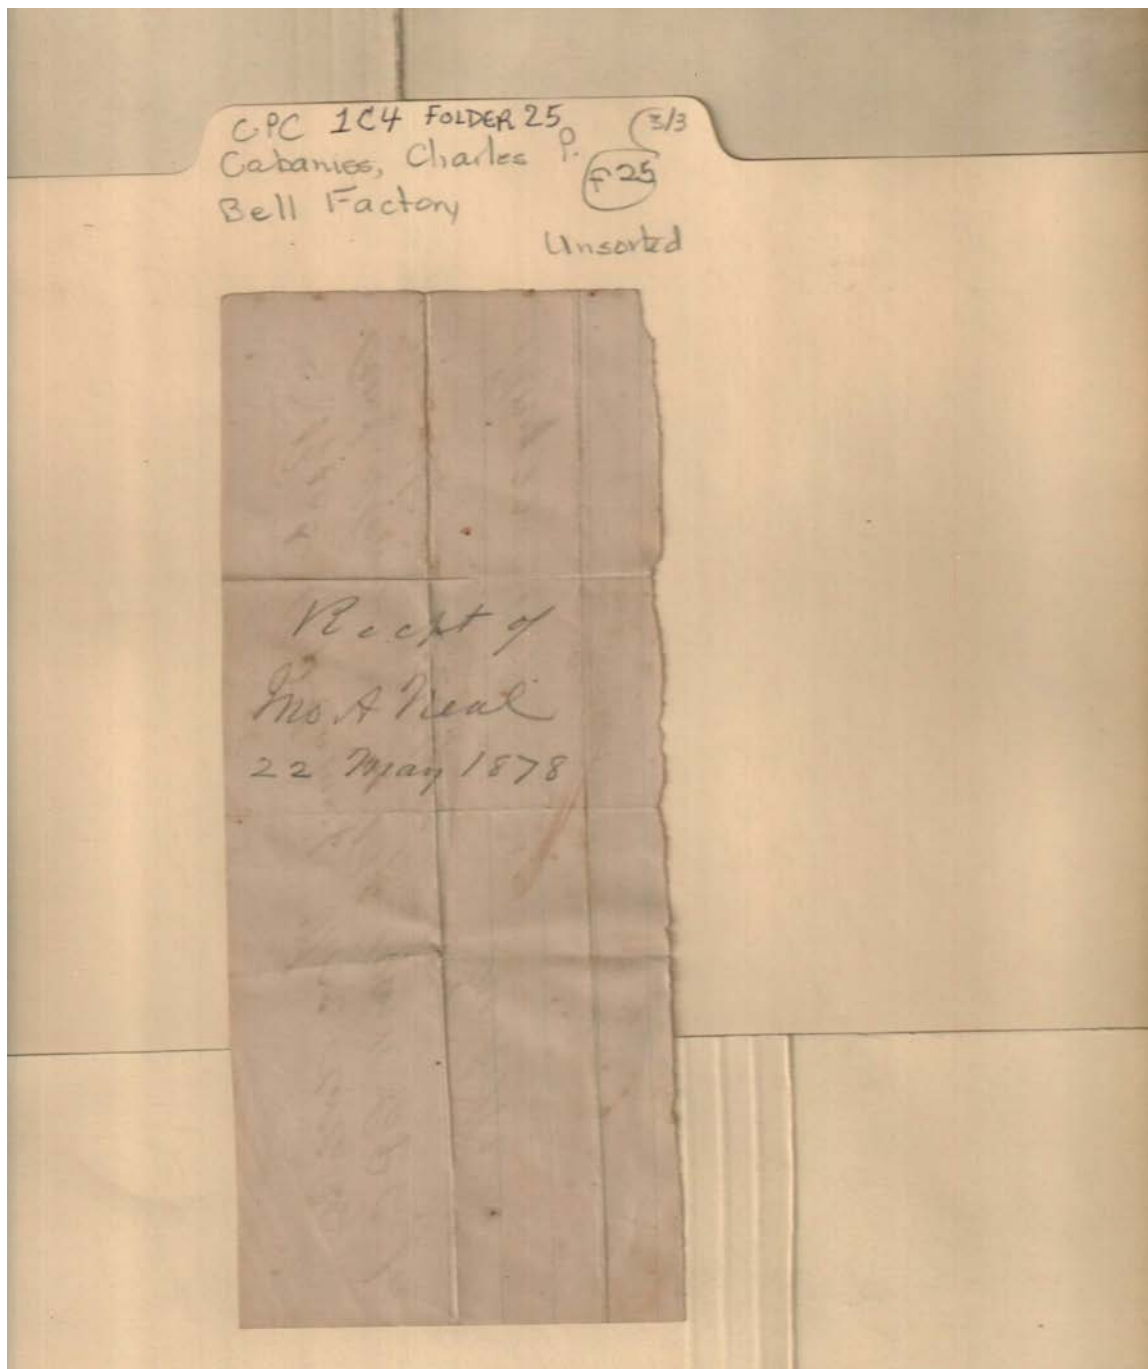 CPC 1C4 FOLDER 25 3/3
Cabaniss, Charles P. F25
Bell Factory
Unsorted
Recpt of
Jno A Neal
22 May 1878